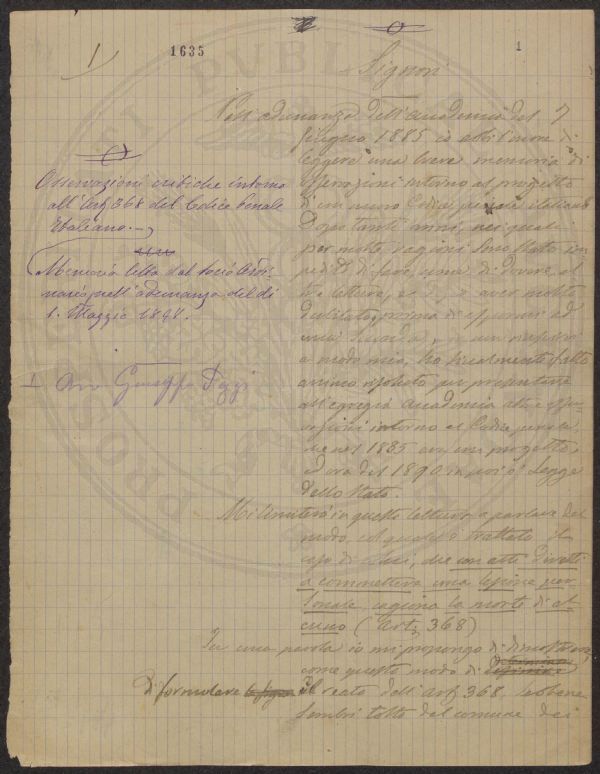 1635
1
Signori
Nell'adunanza dell'accademia del 7
giugno 1885 io ebbi l'onore di
leggere una breve memoria di
osservazioni intorno al progetto
d'un nuovo Codice penale italiano
Dopo tanti anni, nei quali
per molte ragioni sono stato im
pedito di fare, una di dovere al
tre letture, e dopo aver molto
dubitato, prima di
una seconda,
a modo mio, ho finalmente fatto
animo risoluto per presentare
all'egregia accademia altre osser
vazioni intorno al Codice penale
che nel 1885 era un progetto,
ed ora dal 1890 in poi è legge
dello Stato.
Mi limiterò in questa lettura a parlare del
modo, col quale è trattato il
caso di colui, che con atti diretti
a commettere una lesione per
sonale, cagiona la morte di al
cuno (Art. 368)
In una parola io mi propongo di dimostrare,
come questo modo di
di formulare il reato dell'art. 368, sebbene
sembri tolto dal comune dei
Osservazioni critiche intorno
all'Art. 368 del Codice Penale
Italiano.
Memoria letta dal socio Ordi
nario, nell'adunanza del dì
1. Maggio 1898.
Avv. Giuseppe
PROSSVM
PVBLIC